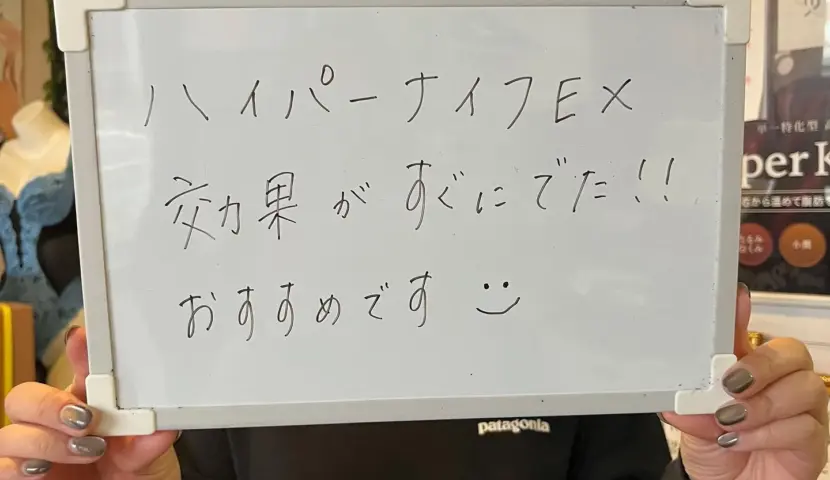 ハイパーナイフEX
効果がすぐにでた!!
おすすめです
patagonia
単一特化型
per K
から温めて脂肪
小顔